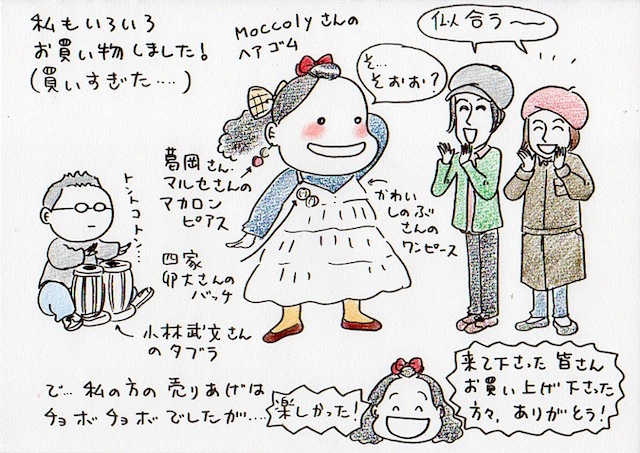 私もいろいろ
お買い物しました!
(買いすぎた‥‥)
Moccolyさんの
ヘアゴム
そ…
そぉお?
似合う〜〜
葛岡さん・
マルセさんの
マカロン
ピアス
かわい
しのぶ
さんの
ワンピース
トントコトン…
四家
卯大さんの
バッチ
小林武文さん
のタブラ
で… 私の方の売りあげは
チョボチョボでしたが‥‥
楽しかった!
来て下さった皆さん
お買い上げ下さった
方々、ありがとう!